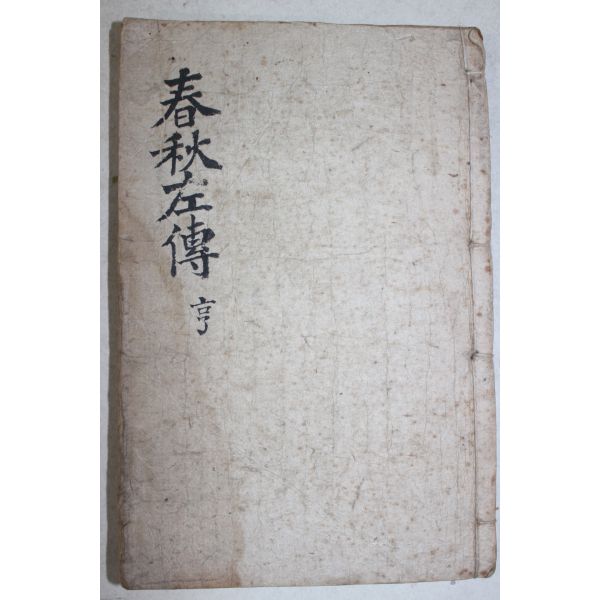 春秋左傳 亨